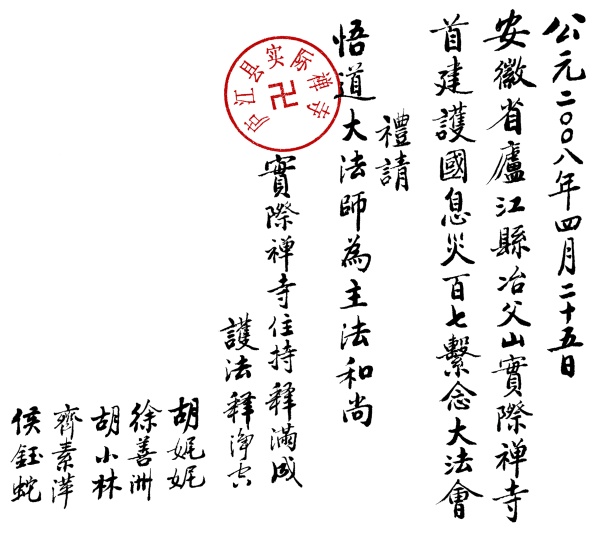 公元二〇〇八年四月二十五日
安徽省廬江縣冶父山實際禪寺
首建護國息災百七繫念大法會
禮請
悟道大法師為主法和尚
實際禪寺住持釋滿成
護法釋淨空
胡妮妮
徐善洲
胡小林
齊素萍
侯鈺蛇
庐江县实际禅寺